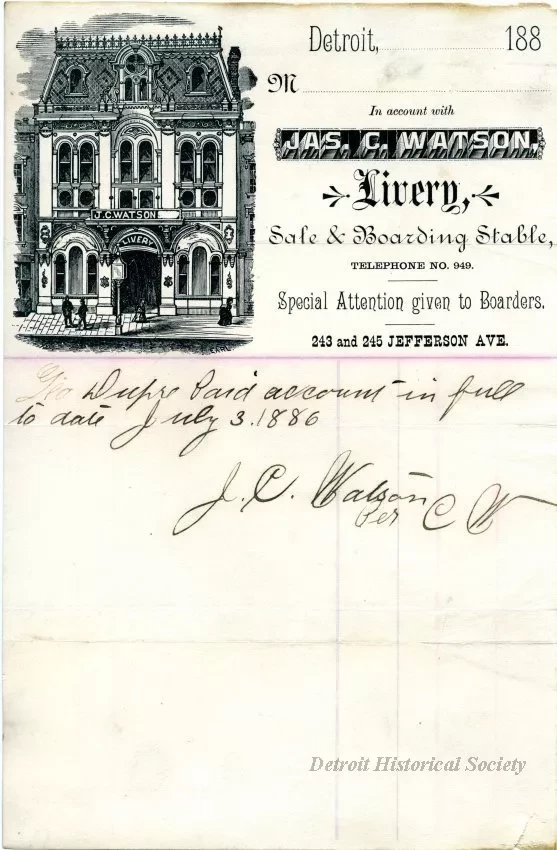 Detroit, 188
M
In account with
JAS. C. WATSON,
Livery,
Sale & Boarding Stable,
TELEPHONE NO. 949.
Special Attention given to Boarders.
243 and 245 JEFFERSON AVE.
J.C. WATSON
LIVERY
EARL
Geo Dupre Paid account in full
to date July 3. 1886
J. C. Watson
Per C W
Detroit Historical Society